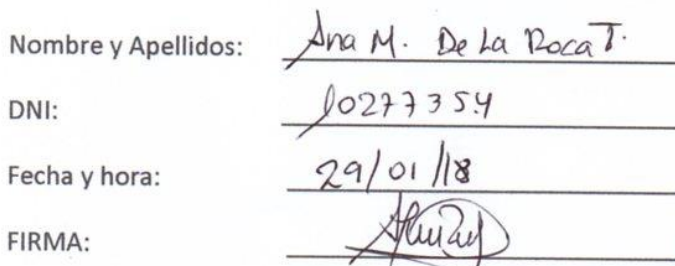 Nombre y Apellidos: Ana M. De La Roca T.
DNI: 10277354
Fecha y hora: 29/01/18
FIRMA: